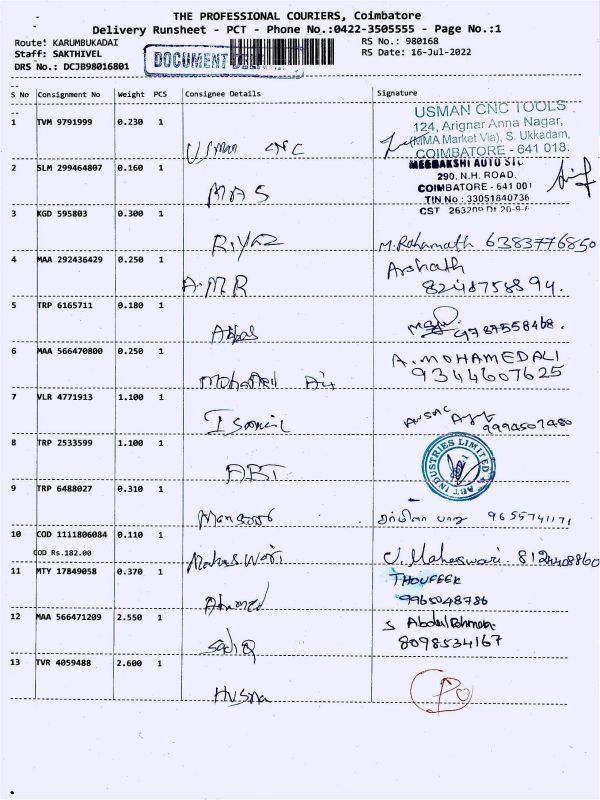 THE PROFESSIONAL COURIERS, Coimbatore
Delivery Runsheet - PCT - Phone No.:0422-3505555 - Page No.:1
Route: KARUMBUKADAI
RS No.: 980168
Staff: SAKTHIVEL
DOCUMENT
RS Date: 16-Jul-2022
DRS No.: DCJB98016801
S No Consignment No Weight PCS Consignee Details Signature
USMAN CNC TOOLS
1 TVM 9791999 0.230 1
124, Arignar Anna Nagar,
(MMA Market Via), S. Ukkadam,
Usman CNC
COIMBATORE - 641 018.
2 SLM 299464807 0.160 1
MEENAKSHI AUTO
290, N.H. ROAD
COIMBATORE - 641 001
MAS
TIN No : 33051840736
CST
3 KGD 595803 0.300 1
Riyaz
M. Rahamath 6383776850
4 MAA 292436429 0.250 1
Arshath
A.M.R
8248758894.
5 TRP 6165711 0.180 1
Abbas
9787558468.
6 MAA 566470800 0.250 1
A. MOHAMED ALI
Mohamed Ali
9344607625
7 VLR 4771913 1.100 1
Ismail
9994507480
8 TRP 2533599 1.100 1
ABT INDUSTRIES LIMITED
ABT
9 TRP 6488027 0.310 1
Mansoor
9655741171
10 COD 1111806084 0.110 1
COD Rs.182.00
Maheswari
U. Maheswari 8124408860
11 MTY 17849058 0.370 1
THOUFEEK
Ahamed
9965048786
12 MAA 566471209 2.550 1
S Abdul Rahman
Sadiq
8098534167
13 TVR 4059488 2.600 1
Husna